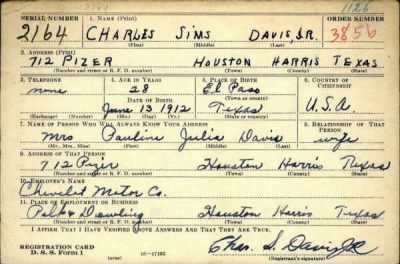 2140 1126
SERIAL NUMBER 1. NAME (Print) ORDER NUMBER
2164 CHARLES SIMS DAVIS, JR. 3856
(First) (Middle) (Last)
2. ADDRESS (Print)
712 PIZER HOUSTON HARRIS TEXAS
(Number and street or R. F. D. number) (Town) (County) (State)
3. TELEPHONE 4. AGE IN YEARS 5. PLACE OF BIRTH 6. COUNTRY OF CITIZENSHIP
none 28 El Paso
DATE OF BIRTH (Town or county)
June 13 1912 Texas U.S.A.
(Exchange) (Number) (Mo.) (Day) (Yr.) (State or country)
7. NAME OF PERSON WHO WILL ALWAYS KNOW YOUR ADDRESS 8. RELATIONSHIP OF THAT PERSON
Mrs Pauline Julia Davis wife
(Mr., Mrs., Miss) (First) (Middle) (Last)
9. ADDRESS OF THAT PERSON
712 Pizer Houston Harris Texas
(Number and street or R. F. D. number) (Town) (County) (State)
10. EMPLOYER'S NAME
Chevrolet Motor Co.
11. PLACE OF EMPLOYMENT OR BUSINESS
Polk & Dowling Houston Harris Texas
(Number and street or R. F. D. number) (Town) (County) (State)
I AFFIRM THAT I HAVE VERIFIED ABOVE ANSWERS AND THAT THEY ARE TRUE.
REGISTRATION CARD
D. S. S. Form 1 (over) Chas. S. Davis Jr.
(Registrant's signature)